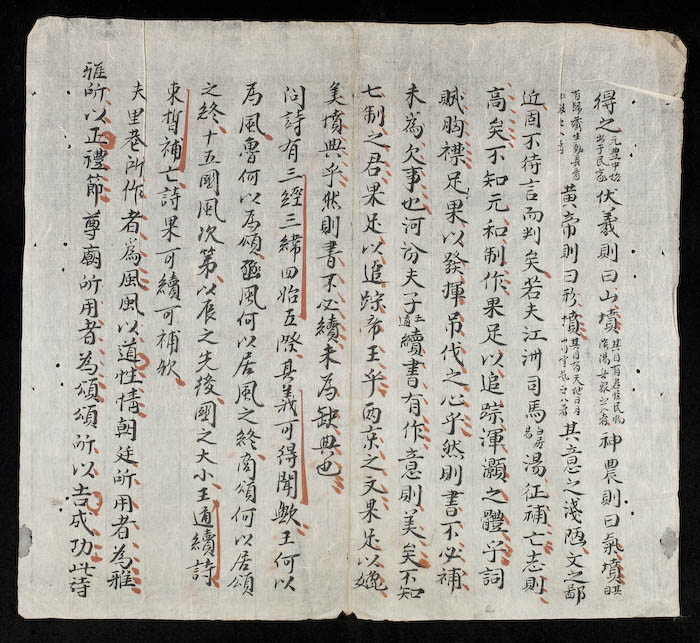 得之元豐中始出于民家伏羲則曰山墳其目有君臣民物陰陽兵象之八者神農則曰氣墳其目
有歸藏生動長育黃帝則曰形墳其目有天地日月山川雲氣之八者其意之淺陋文之鄙
近固不待言而判矣若夫江洲司馬白居易湯征補亡志則
高矣不知元和制作果足以追踪渾灝之體乎詞
賦胸襟足果以發揮吊伐之心乎然則書不必補
未為欠事也河汾夫子王通續書有作意則美矣不知
七制之君果足以追踪帝王乎西京之文果足以媲
美墳典乎然則書不必續未為缺典也
問詩有三經三緯四始五際其義可得聞歟王何以
為風魯何以為頌豳風何以居風之終商頌何以居頌
之終十五國風次第以辰之先後國之大小王通續詩
束晳補亡詩果可續可補欤
夫里巷所作者為風風以道性情朝廷所用者為雅
雅所以正禮節尊廟所用者為頌頌所以告成功此詩